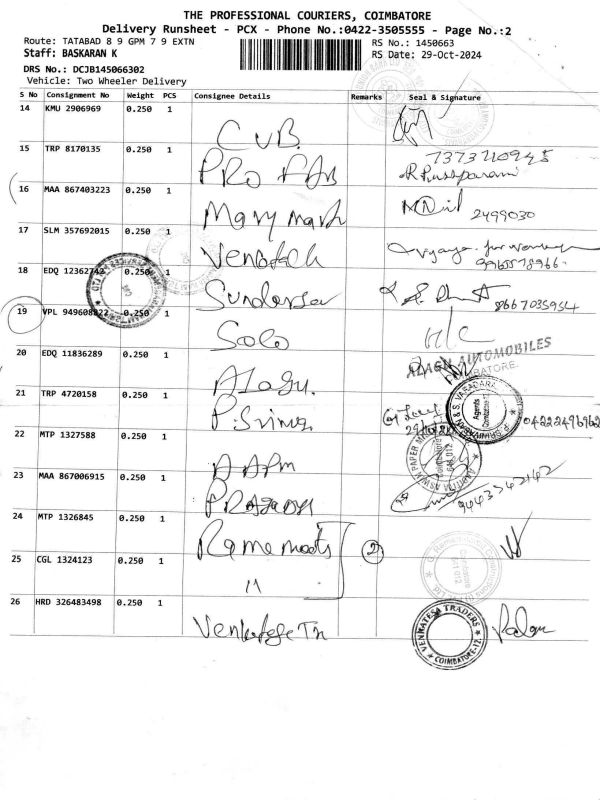 THE PROFESSIONAL COURIERS, COIMBATORE
Delivery Runsheet - PCX - Phone No.:0422-3505555 - Page No.:2
Route: TATABAD 8 9 GPM 7 9 EXTN
RS No.: 1450663
Staff: BASKARAN K
RS Date: 29-Oct-2024
DRS No.: DCJB145066302
Vehicle: Two Wheeler Delivery
S No Consignment No Weight PCS Consignee Details Remarks Seal & Signature
14 KMU 2906969 0.250 1 CUB.
15 TRP 8170135 0.250 1 PRO 7373710945
16 MAA 867403223 0.250 1 Mary mark 2499030
17 SLM 357692015 0.250 1
18 EDQ 12362742 0.250 1 8667035954
19 VPL 949608822 0.250 1 Solo H/C
20 EDQ 11836289 0.250 1 Alagu. ALAGU AUTOMOBILES
COIMBATORE.
21 TRP 4720158 0.250 1 P.Sriniva P. SRINIVASAN & S. VARADARA
Agents
Coimbatore-12
04222496962
22 MTP 1327588 0.250 1 AAPM
23 MAA 867006915 0.250 1 9443342142
24 MTP 1326845 0.250 1 2
25 CGL 1324123 0.250 1 11
26 HRD 326483498 0.250 1 VENKATESA TRADERS
COIMBATORE-12.